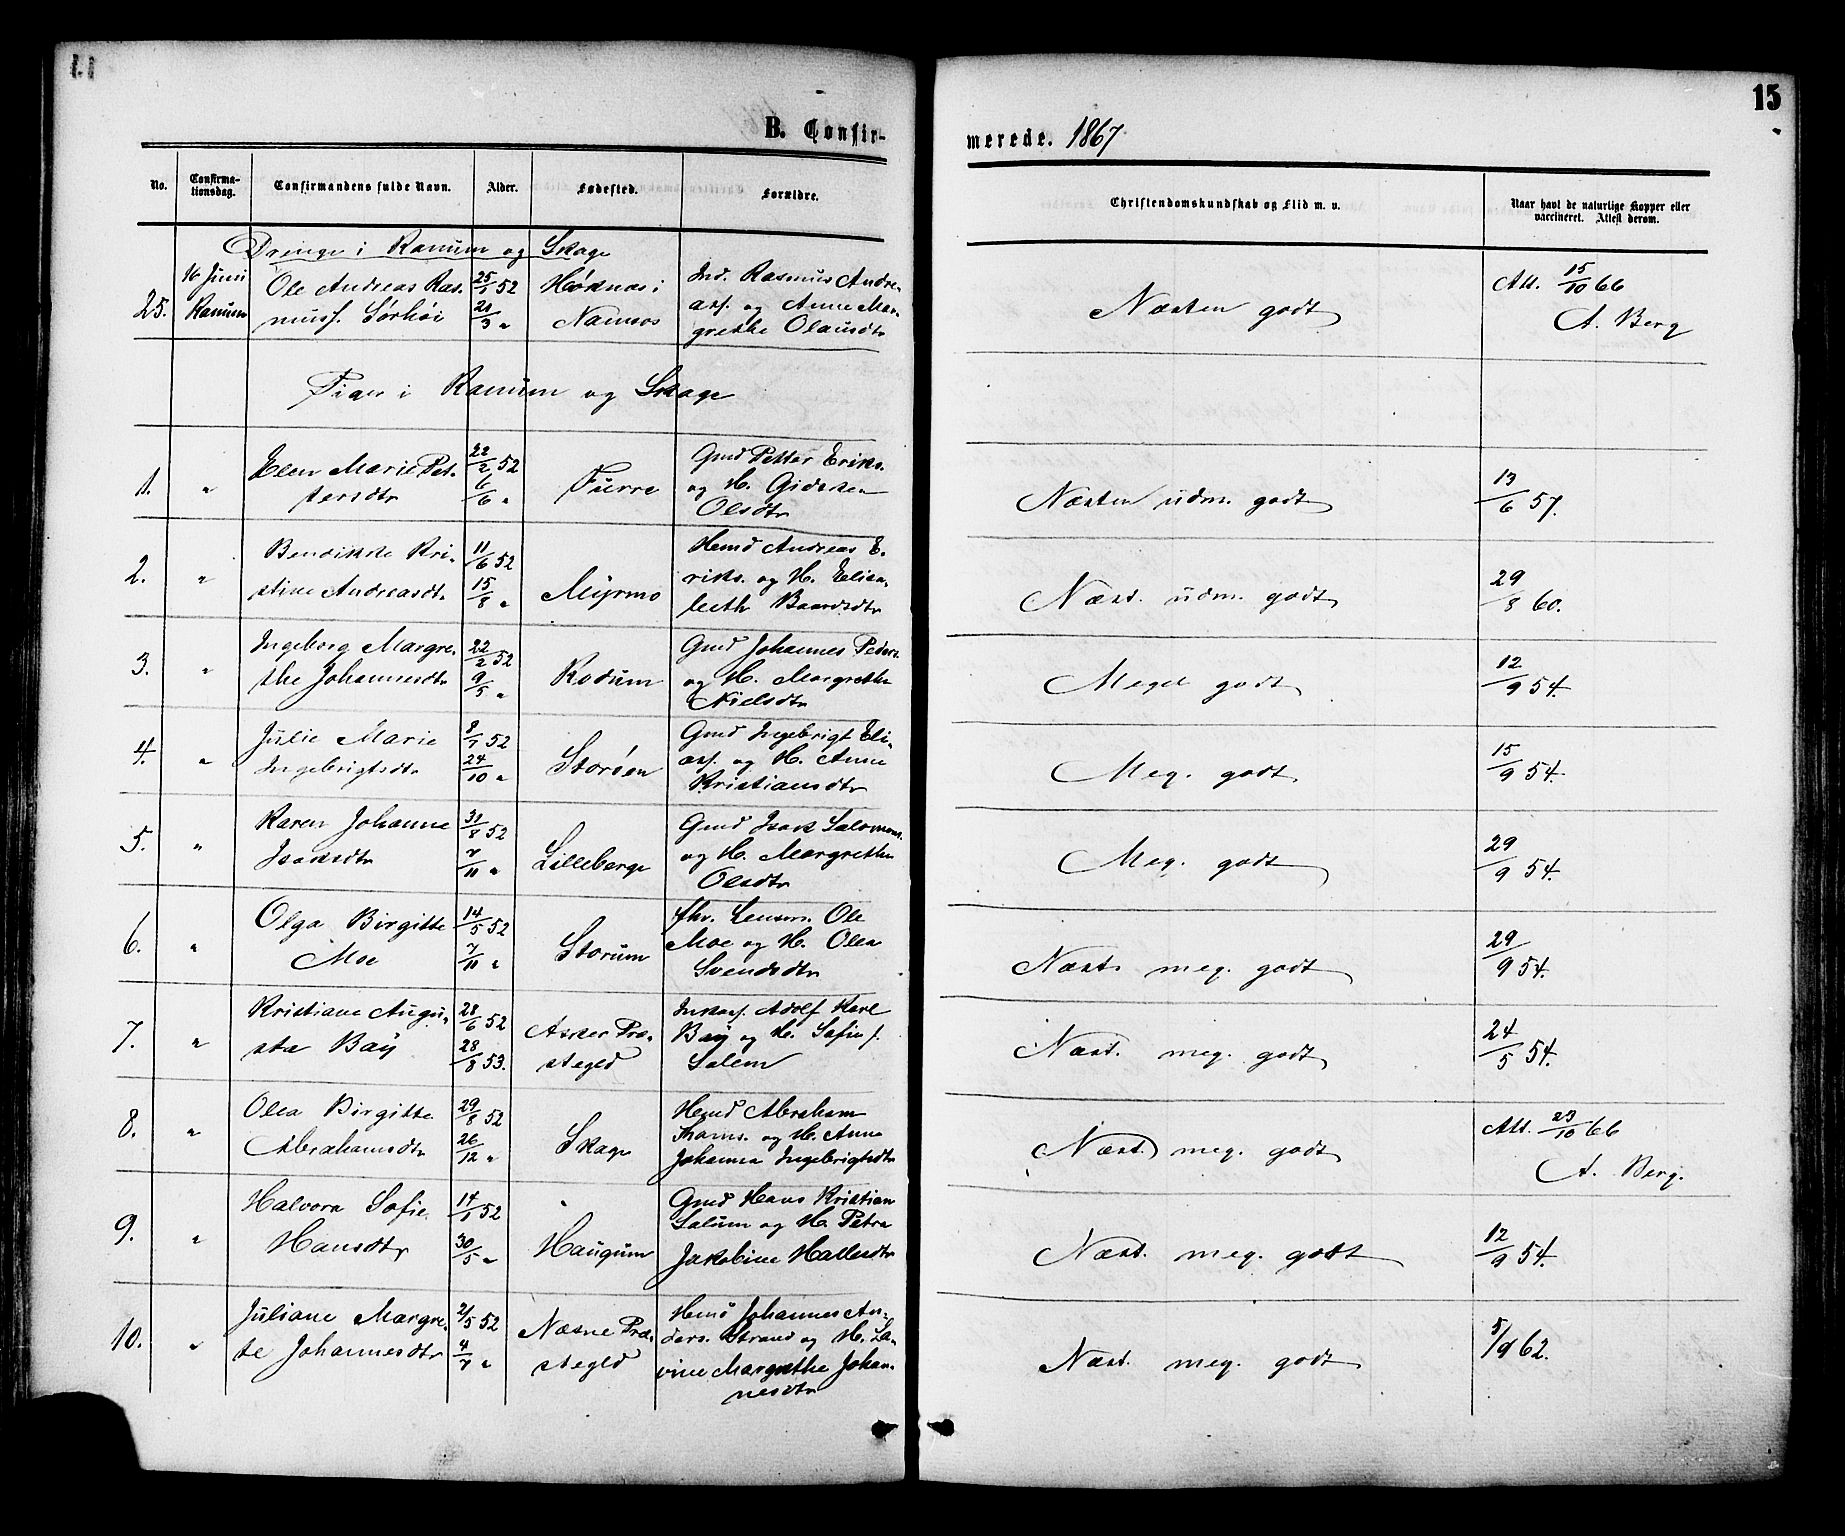 15
B. Confir-
merede. 1867
No.
Confirma-
tionsdag.
Confirmandens fulde Navn.
Alder.
Fødested.
Forældre.
Christendomskundskab og Flid m. v.
Naar havt de naturlige Kopper eller
vaccineret. Attest derom.
Drenge i Ranum og Skage
25.
16 Juni
Ranum
Ole Andreas Ras-
musf. Sørhøi
25/1 52
21/3 "
Høknæs i
Namsos
Ind. Rasmus Andre-
asf. og Anne Mar-
grethe Olausdtr
Næsten godt
Att. 15/10 66
A. Berg
Piger i Ranum og Skage
1.
"
Elen Marie Pet-
tersdtr
22/2 52
6/6 "
Furre
Gmd Petter Eriks.
og H. Gidsken
Olsdtr
Næsten udm. godt
13/6 57.
2.
"
Bendikte Kri-
stine Andreasdtr
11/6 52
15/8 "
Myrmo
Hemd Andreas E-
riks. og H. Elisa-
beth Baardsdtr
Næst. udm. godt
29/8 60.
3.
"
Ingeborg Margre-
the Johannesdtr
22/2 52
9/5 "
Rodum
Gmd Johannes Peders.
og H. Margrethe
Nielsdtr
Meget godt
12/9 54.
4.
"
Julie Marie
Ingebrigtsdtr
8/7 52
24/10 "
Storøen
Gmd Ingebrigt Eli-
asf. og H. Anne
Kristiansdtr
Meg. godt
15/9 54.
5.
"
Karen Johanne
Isaksdtr
31/8 52
7/11 "
Lilleberge
Gmd Isak Salomons.
og H. Margrethe
Olsdtr
Meg. godt
29/9 54.
6.
"
Olga Birgitte
Moe
14/5 52
7/11 "
Storum
fhv. Lensm. Ole
Moe og H. Olea
Svendsdtr
Næst. meg. godt
29/9 54.
7.
"
Kristiane Augu-
sta Bay
28/6 52
28/8 53.
Asker Præ-
stegld
Adolf Karl
Bay og H. Sofie f.
Salem
Næst. meg. godt
24/5 54.
8.
"
Olea Birgitte
Abrahamsdtr
29/8 52
26/12 "
Skage
Hemd Abraham
Thoms. og H. Anne
Johanna Ingebrigtsdtr
Næst. meg. godt
Att. 23/10 66
A. Berg.
9.
"
Halvora Sofie
Hansdtr
14/1 52
30/5 "
Haugum
Gmd Hans Kristian
Salum og H. Petra
Jakobine Hallesdtr
Næst. meg. godt
12/9 54.
10.
"
Juliane Margre-
te Johannesdtr
2/5 52
4/7 "
Næsne Præ-
stegld
Hemd Johannes An-
ders. Strand og H. La-
vine Margrethe Johan-
nesdtr
Næst. meg. godt
5/9 62.